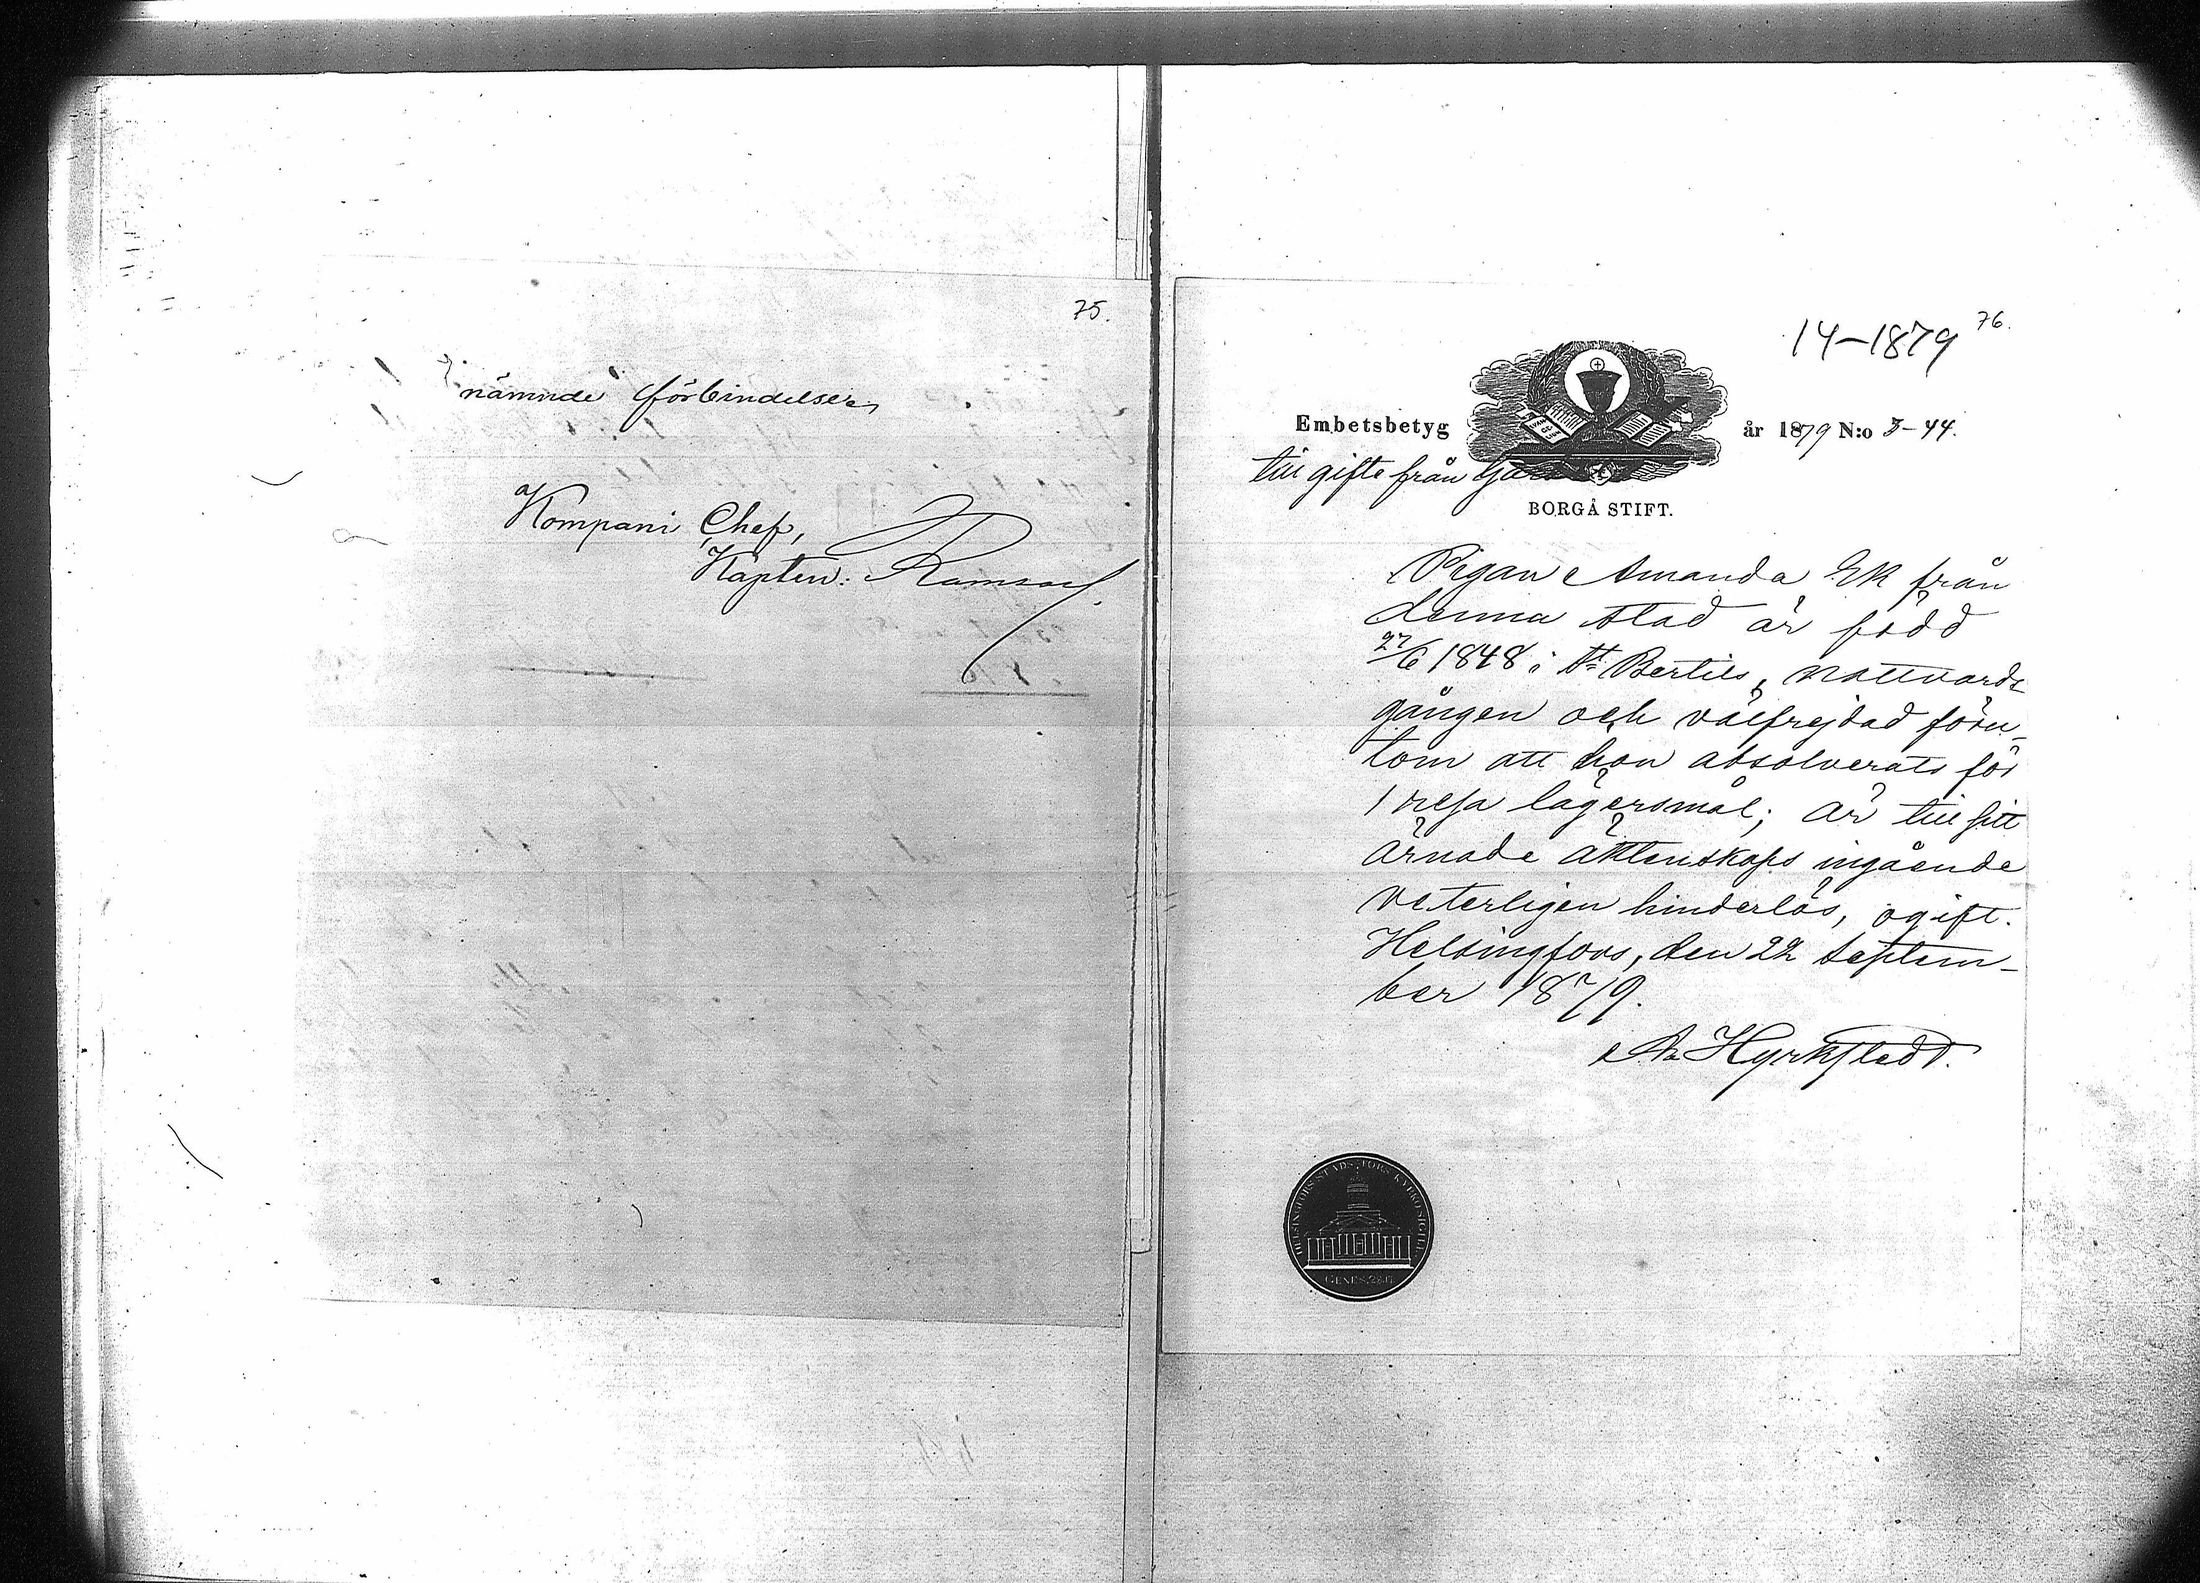 75.
nämnde förbindelser
Kompani Chef,
Kapten: Ramsay.
76.
14-1879
Embetsbetyg år 1879 N:o 3-44.
till gifte från
BORGÅ STIFT.
Pigan Amanda Ek från
denna stad är född
27/6 1848 i St Bertils, nattvards
gången och välfrejdad föru-
tom att hon absolverats för
1 resa lägersmål; är till sitt
ärnade äktenskaps ingående
veterligen hinderlös, ogift.
Helsingfors, den 22 Septem-
ber 1879.
Hyrkstedt.
HELSINGFORS STADS FÖRS. KYRKO SIGILL
GENES. 28.17.